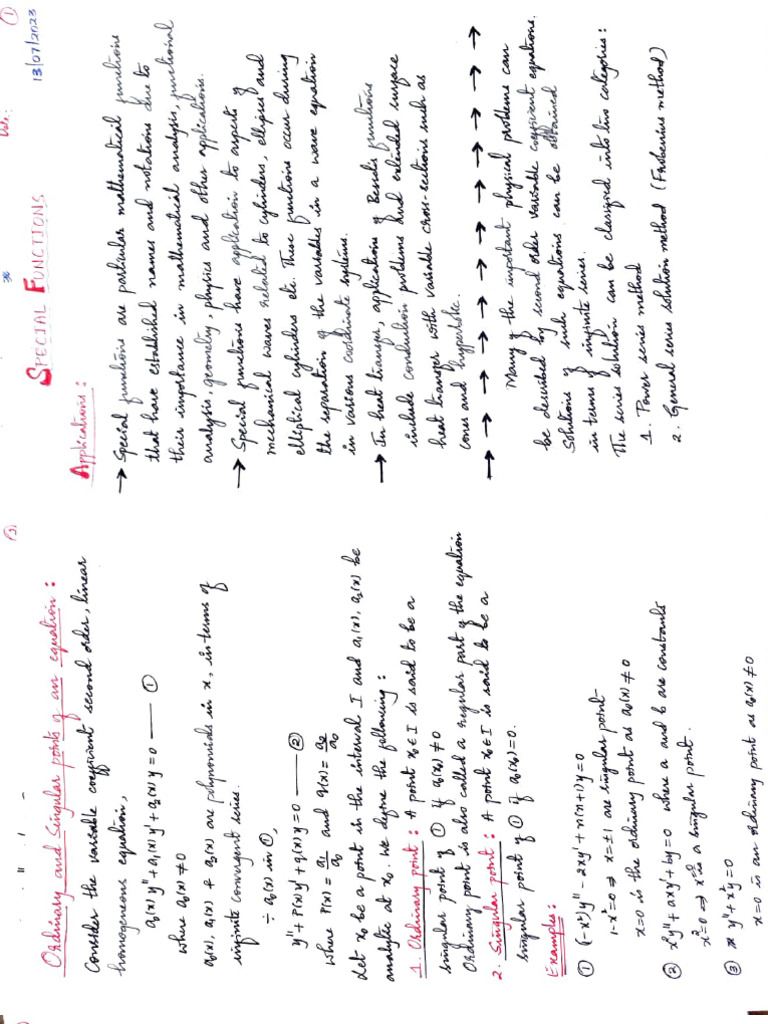 ①
Date:
38
13/07/2023
SPECIAL FUNCTIONS
Applications:
→ Special functions are particular mathematical functions
that have established names and notations due to
their importance in mathematical analysis, functional
analysis, geometry, physics and other applications.
→ Special functions have application to aspect of
mechanical waves related to cylinders, ellipses and
elliptical cylinders etc. These functions occur during
the separation of the variables in a wave equation
in various coordinate systems.
→ In heat transfer, applications of Bessels functions
include conduction problems and extended surface
heat transfer with variable cross-sections such as
cones and hyperbole.
→ → → → → → → → → → →
Many of the important physical problems can
be described by second order variable coefficient equations.
Solutions of such equations can be obtained
in terms of infinite series.
The series solution can be classified into two categories:
1. Power series method
2. General series solution method (Frobenius method)
Ordinary and Singular points of an equation:
Consider the variable coefficient second order, linear
homogeneous equation,
a₀(x)y'' + a₁(x)y' + a₂(x)y = 0 — ①
where a₀(x) ≠ 0
a₀(x), a₁(x) & a₂(x) are polynomials in x, in terms of
infinite convergent series.
÷ a₀(x) in ①,
y'' + P(x)y' + q(x)y = 0 — ②
where P(x) = a₁/a₀ and q(x) = a₂/a₀
Let x₀ be a point in the interval I and a₁(x), a₂(x) be
analytic at x₀. We define the following:
1. Ordinary point: A point x₀ ∈ I is said to be a
singular point of ① if a₀(x₀) ≠ 0
Ordinary point is also called a regular part of the equation
2. Singular point: A point x₀ ∈ I is said to be a
singular point of ① if a₀(x₀) = 0.
Examples:
① (-x²)y'' - 2xy' + n(n+1)y = 0
1-x² = 0 ⇒ x = ±1 are singular point
x=0 is the ordinary point as a₀(x) ≠ 0
② x²y'' + axy' + by = 0 where a and b are constants
x² = 0 ⇒ x=0 is a singular point.
③ y'' + x²y = 0
x=0 is an ordinary point as a₀(x) ≠ 0